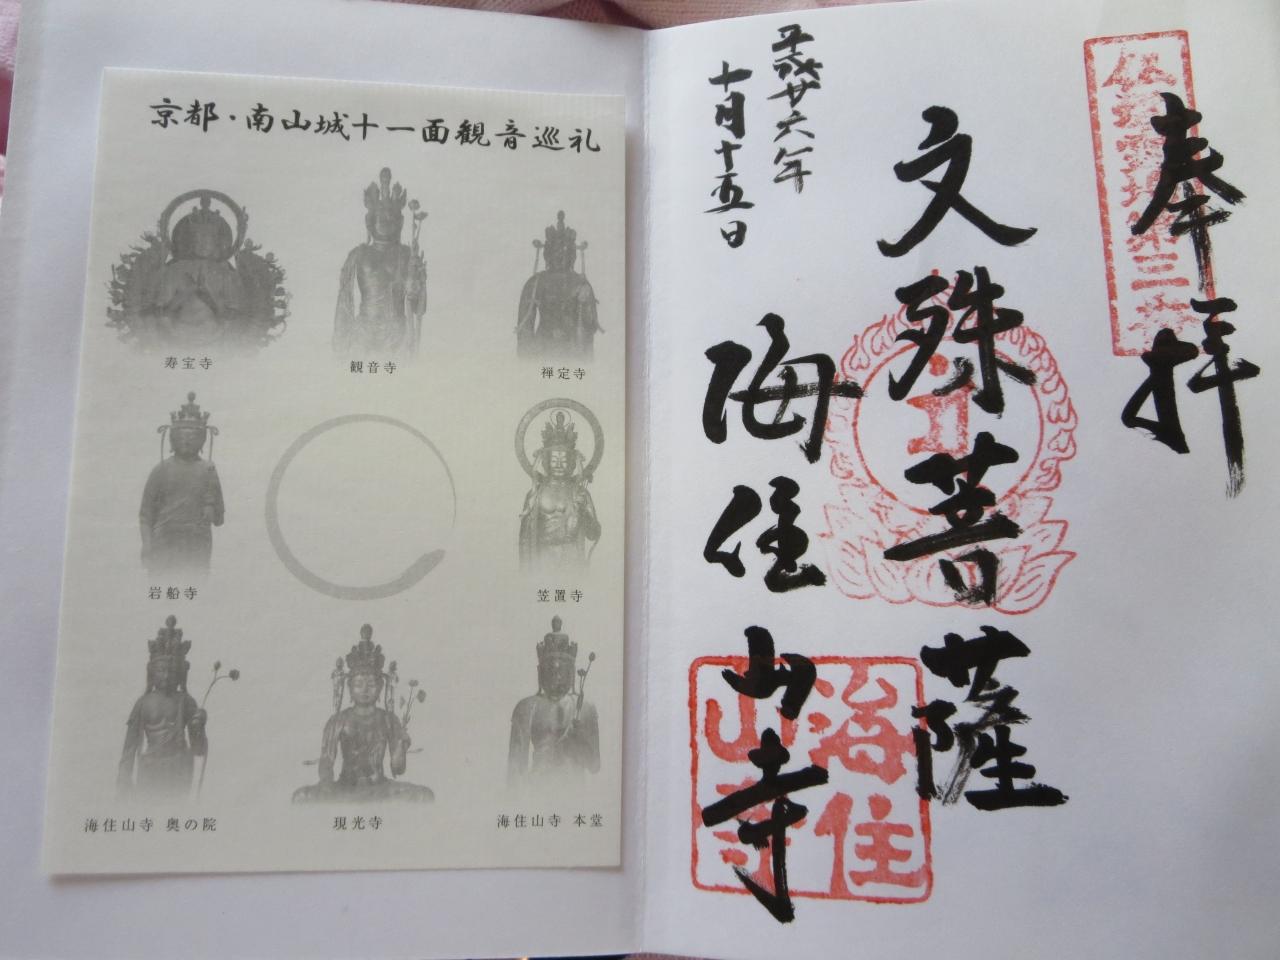 京都・南山城十一面観音巡礼
寿宝寺
観音寺
禅定寺
岩船寺
笠置寺
海住山寺 奥の院
現光寺
海住山寺 本堂
奉拝
文殊菩薩
海住山寺
平成廿六年
十月十五日
海住
山寺